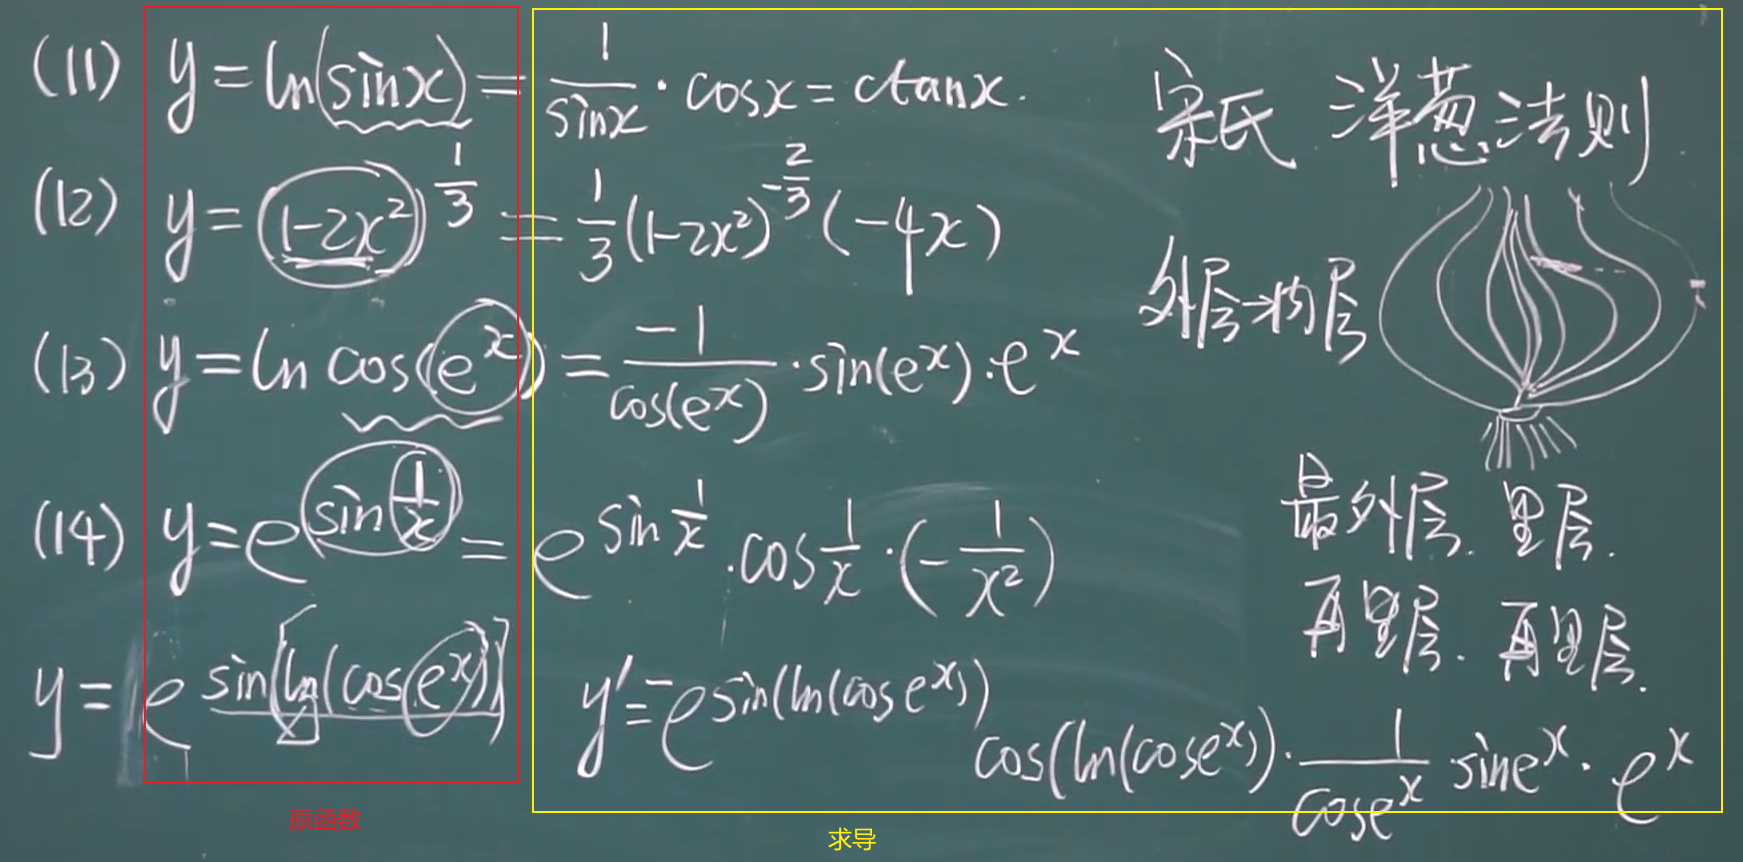 (11) y=ln(sinx)=1/sinx·cosx=ctanx.
(12) y=(1-2x²)^(1/3)=1/3(1-2x²)^(-2/3)(-4x)
(13) y=ln cos(e^x)=-1/cos(e^x)·sin(e^x)·e^x
(14) y=e^(sin 1/x)=e^(sin 1/x)·cos 1/x·(-1/x²)
y=e^(sin[ln(cos(e^x))])
y'=-e^(sin(ln(cose^x)))
cos(ln(cose^x))·1/cose^x sine^x·e^x
宋氏 洋葱法则
外层→内层
最外层. 里层.
再里层. 再里层.
原函数
求导